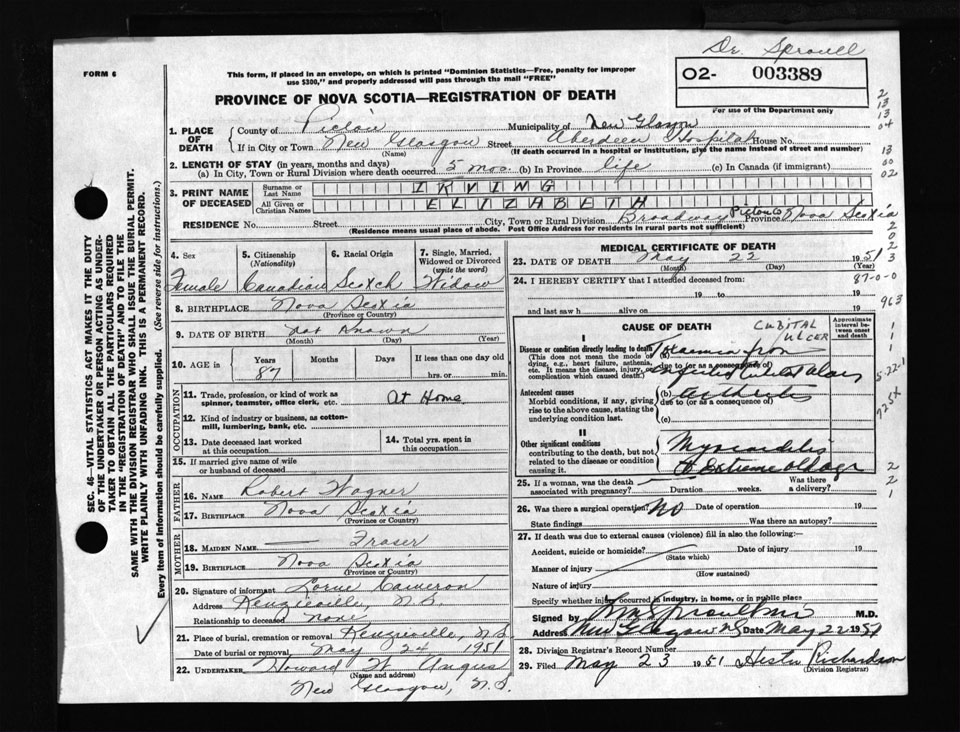 Dr. Sproull
FORM 6
This form, if placed in an envelope, on which is printed "Dominion Statistics—Free, penalty for improper
use $300," and properly addressed will pass through the mail "FREE"
O2- 003389
For use of the Department only
PROVINCE OF NOVA SCOTIA—REGISTRATION OF DEATH
1. PLACE OF DEATH
County of Pictou Municipality of New Glasgow
If in City or Town New Glasgow Street Aberdeen Hospital House No.
(Name) (If death occurred in a hospital or institution, give the name instead of street and number)
2. LENGTH OF STAY (in years, months and days)
(a) In City, Town or Rural Division where death occurred 5 mos. (b) In Province life (c) In Canada (if immigrant)
3. PRINT NAME OF DECEASED
Surname or Last Name IRVING
All Given or Christian Names ELIZABETH
RESIDENCE No. Street City, Town or Rural Division Broadway Pictou Co Province Nova Scotia
(Residence means usual place of abode. Post Office Address for residents in rural parts not sufficient)
4. Sex
Female
5. Citizenship (Nationality)
Canadian
6. Racial Origin
Scotch
7. Single, Married, Widowed or Divorced (write the word)
Widow
8. BIRTHPLACE Nova Scotia
(Province or Country)
9. DATE OF BIRTH not known
(Month) (Day) (Year)
10. AGE in Years Months Days If less than one day old
87 hrs. or min.
OCCUPATION
11. Trade, profession, or kind of work as
spinner, teamster, office clerk, etc. At Home
12. Kind of industry or business, as cotton-
mill, lumbering, bank, etc.
13. Date deceased last worked
at this occupation
14. Total yrs. spent in
this occupation
15. If married give name of wife
or husband of deceased
FATHER
16. Name Robert Wagner
17. Birthplace Nova Scotia
(Province or Country)
MOTHER
18. Maiden Name — Fraser
19. Birthplace Nova Scotia
(Province or Country)
20. Signature of informant Lorne Cameron
Address Kenzieville, N.S.
Relationship to deceased none
21. Place of burial, cremation or removal Kenzieville, N.S
Date of burial or removal May 24 1951
22. Undertaker Howard W. Angus
New Glasgow, N.S.
MEDICAL CERTIFICATE OF DEATH
23. DATE OF DEATH May 22 1951
(Month) (Day) (Year)
24. I HEREBY CERTIFY that I attended deceased from:
87-0-0
19 to 19
and last saw h alive on 19
CAUSE OF DEATH
CUBITAL ULCER
Approximate interval between onset and death
I
Disease or condition directly leading to death
(This does not mean the mode of
dying, e.g., heart failure, asthenia,
etc. It means the disease, injury, or
complication which caused death.)
(a)
due to (or as a consequence of)
Antecedent causes
Morbid conditions, if any, giving
rise to the above cause, stating the
underlying condition last.
(b)
due to (or as a consequence of)
(c)
II
Other significant conditions
contributing to the death, but not
related to the disease or condition
causing it.
Myocarditis
Extreme old age
25. If a woman, was the death
associated with pregnancy? Duration weeks. Was there a delivery?
26. Was there a surgical operation? No Date of operation 19
State findings Was there an autopsy?
27. If death was due to external causes (violence) fill in also the following:—
Accident, suicide or homicide? Date of injury 19
(State which)
Manner of injury
(How sustained)
Nature of injury
Specify whether injury occurred in industry, in home, or in public place
Signed by Sproull M.D.
Address New Glasgow NS Date May 22 1951
28. Division Registrar's Record Number
29. Filed May 23 1951 Hester Richardson
(Division Registrar)
SEC. 46—VITAL STATISTICS ACT MAKES IT THE DUTY
OF THE UNDERTAKER OR PERSON ACTING AS UNDER-
TAKER TO OBTAIN ALL THE PARTICULARS REQUIRED
IN THE "REGISTRATION OF DEATH" AND TO FILE THE
SAME WITH THE DIVISION REGISTRAR WHO SHALL ISSUE THE BURIAL PERMIT.
WRITE PLAINLY WITH UNFADING INK. THIS IS A PERMANENT RECORD.
Every item of information should be carefully supplied. (See reverse side for instructions.)
2
13
13
04
13
00
02
2
0
2
3
963
1
1
1
5-22-1
2
2
1